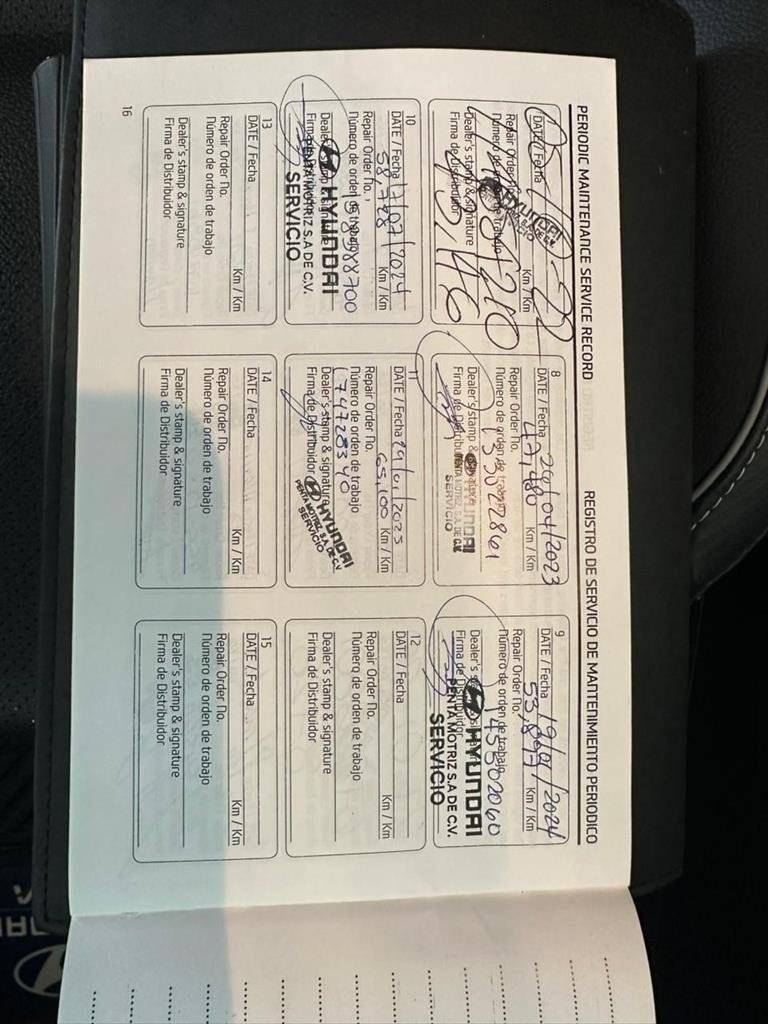 PERIODIC MAINTENANCE SERVICE RECORD
REGISTRO DE SERVICIO DE MANTENIMIENTO PERIODICO
DATE / Fecha
Km / Km
Repair Order No.
Número de orden de trabajo
Dealer's stamp & signature
Firma de Distribuidor
HYUNDAI
SERVICIO
8
DATE / Fecha 20/04/2023
47,480 Km / Km
Repair Order No.
Número de orden de trabajo
Dealer's stamp & signature
Firma de Distribuidor
HYUNDAI
PENTA MOTRIZ S.A. DE C.V.
SERVICIO
9
DATE / Fecha 19/01/2024
53,897 Km / Km
Repair Order No.
Número de orden de trabajo
145502060
Dealer's stamp & signature
Firma de Distribuidor
HYUNDAI
PENTA MOTRIZ S.A DE C.V.
SERVICIO
10
DATE / Fecha 17/07/2024
58,728 Km / Km
Repair Order No.
Número de orden de trabajo
158988700
Dealer's stamp & signature
Firma de Distribuidor
HYUNDAI
PENTA MOTRIZ S.A DE C.V.
SERVICIO
11
DATE / Fecha 29/01/2025
65,100 Km / Km
Repair Order No.
Número de orden de trabajo
174728340
Dealer's stamp & signature
Firma de Distribuidor
HYUNDAI
PENTA MOTRIZ S.A. DE C.V.
SERVICIO
12
DATE / Fecha
Km / Km
Repair Order No.
Número de orden de trabajo
Dealer's stamp & signature
Firma de Distribuidor
13
DATE / Fecha
Km / Km
Repair Order No.
Número de orden de trabajo
Dealer's stamp & signature
Firma de Distribuidor
14
DATE / Fecha
Km / Km
Repair Order No.
Número de orden de trabajo
Dealer's stamp & signature
Firma de Distribuidor
15
DATE / Fecha
Km / Km
Repair Order No.
Número de orden de trabajo
Dealer's stamp & signature
Firma de Distribuidor
16